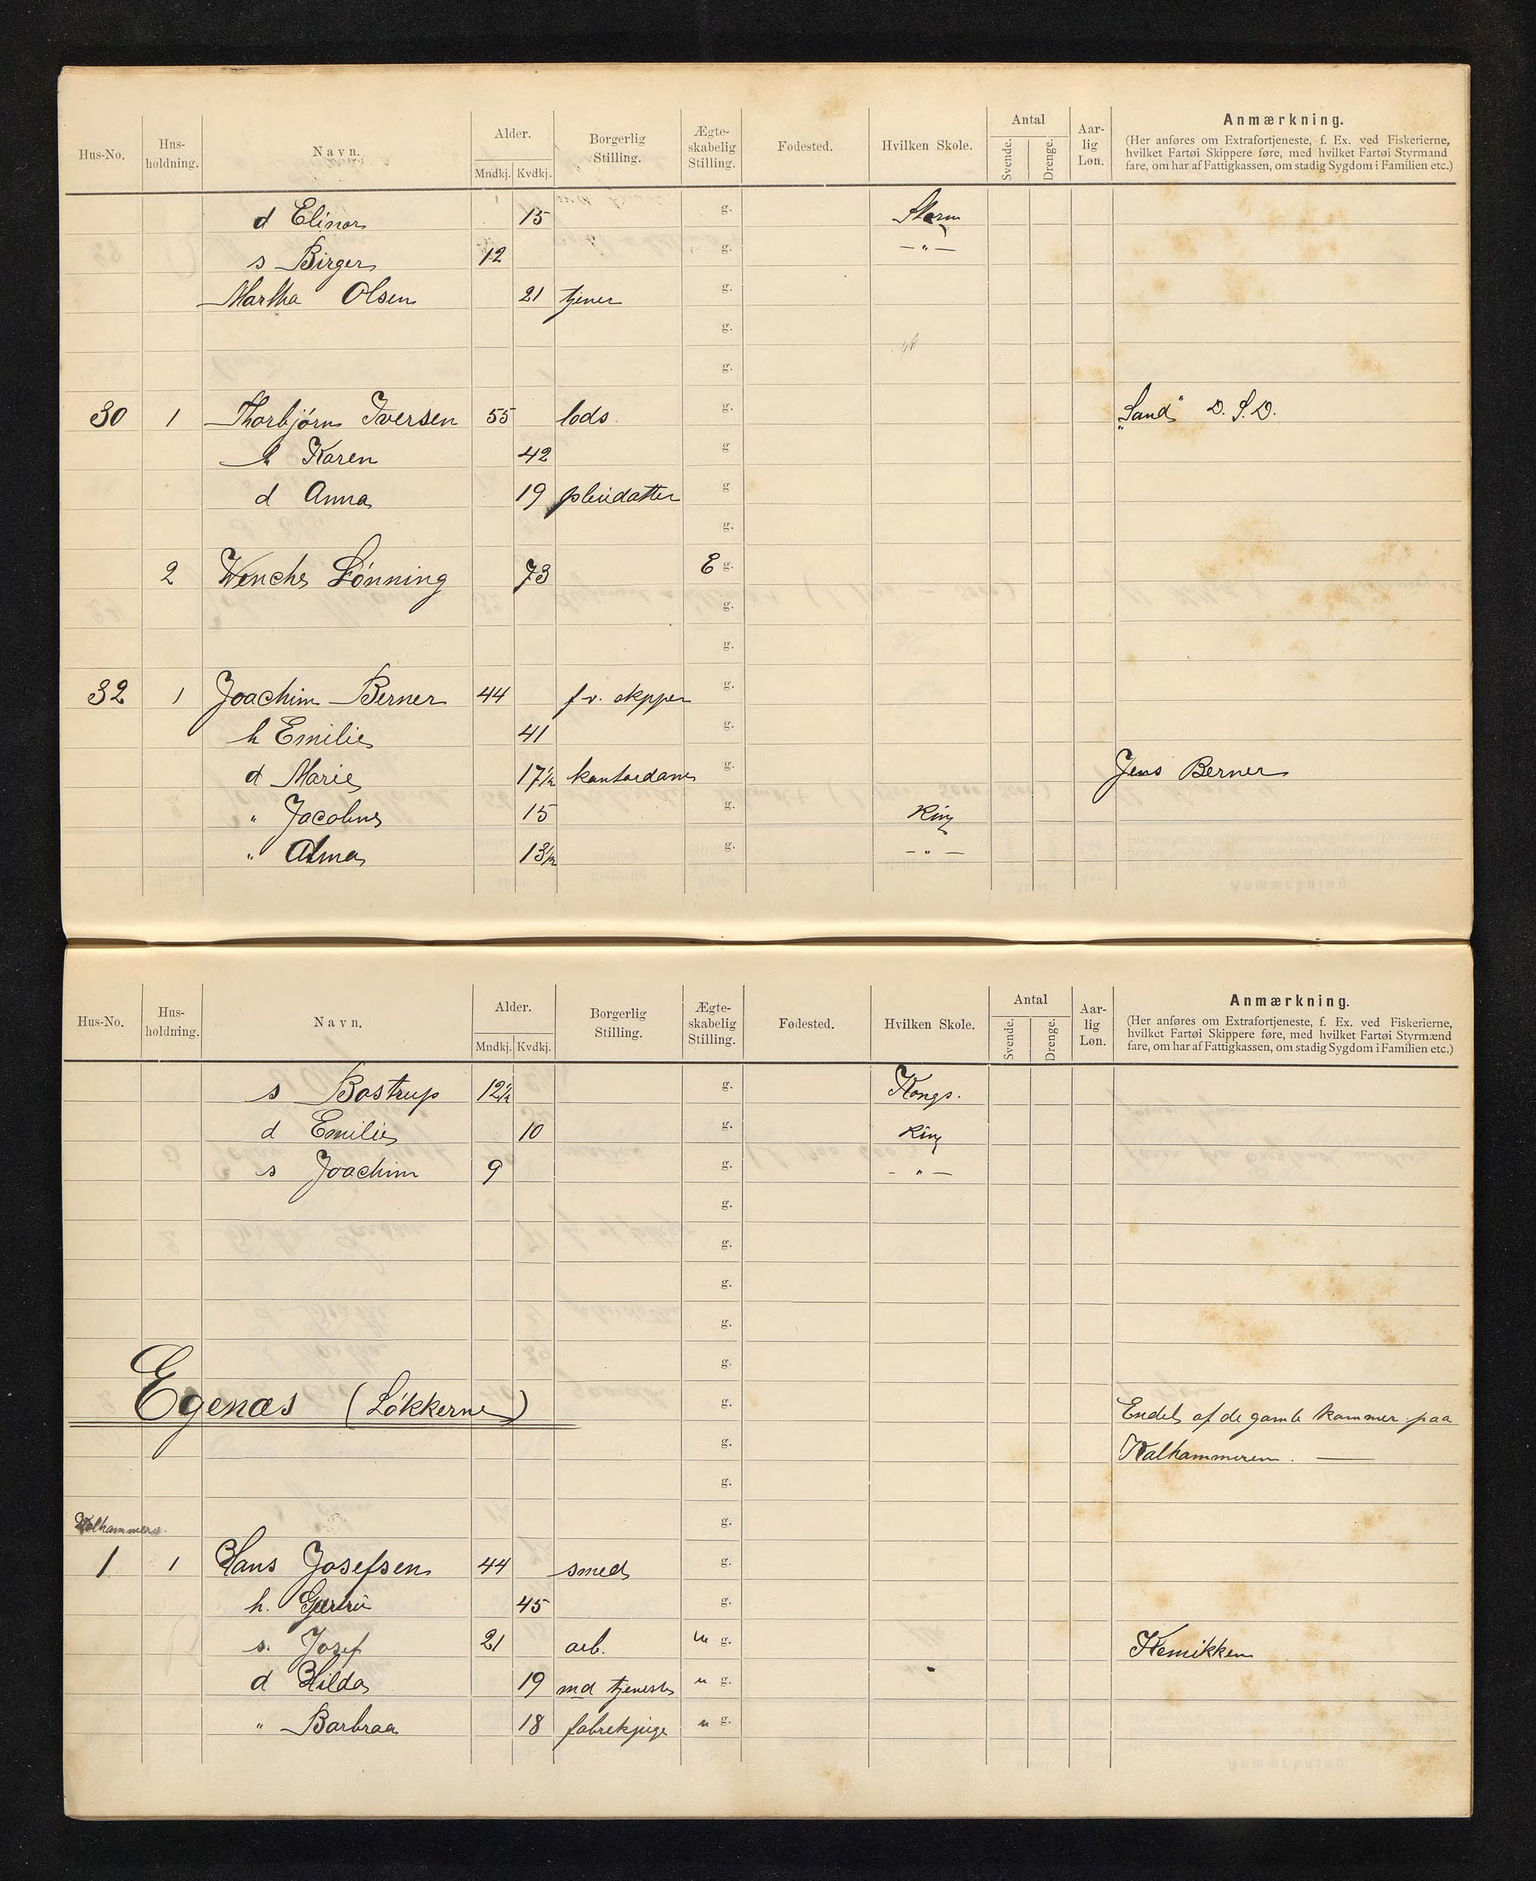 Hus-No. Hus-holdning. Navn. Alder. Mndkj. Kvdkj. Borgerlig Stilling. Ægte-skabelig Stilling. Fødested. Hvilken Skole. Antal Svende. Drenge. Aar-lig Løn. Anmærkning.
(Her anføres om Extrafortjeneste, f. Ex. ved Fiskerierne, hvilket Fartøi Skippere føre, med hvilket Fartøi Styrmænd fare, om har af Fattigkassen, om stadig Sygdom i Familien etc.)
d Elinor 15 g. Storm
s Birger 12 g. – " –
Martha Olsen 21 tjener g.
g.
g.
30 1 Thorbjørn Iversen 55 lods. g. "Sand" D. S. D.
h Karen 42 g.
d Anna 19 pleiedatter g.
g.
2 Wenche Lønning 73 E g.
g.
g.
32 1 Joachim Berner 44 f.v. skpper g.
h Emilie 41 g.
d Marie 17½ kontordame g. Jens Berner
" Jacobine 15 g. King
" Alma 13½ g. – " –
Hus-No. Hus-holdning. Navn. Alder. Mndkj. Kvdkj. Borgerlig Stilling. Ægte-skabelig Stilling. Fødested. Hvilken Skole. Antal Svende. Drenge. Aar-lig Løn. Anmærkning.
(Her anføres om Extrafortjeneste, f. Ex. ved Fiskerierne, hvilket Fartøi Skippere føre, med hvilket Fartøi Styrmænd fare, om har af Fattigkassen, om stadig Sygdom i Familien etc.)
s Bostrup 12½ g. Kongs.
d Emilie 10 g. King
s Joachim 9 g. – " –
g.
g.
g.
g.
g.
Egenæs (Løkkerne) g. Endel af de gamle kammer paa
g. Kalhammeren. —
g.
Kalhammern. g.
1 1 Hans Josefsen 44 smed g.
h. Gurtrü 45 g.
s. Josef 21 arb. u g. Kemikken
d Hilda 19 md tjeneste u g.
" Barbraa 18 fabrekpige u g.